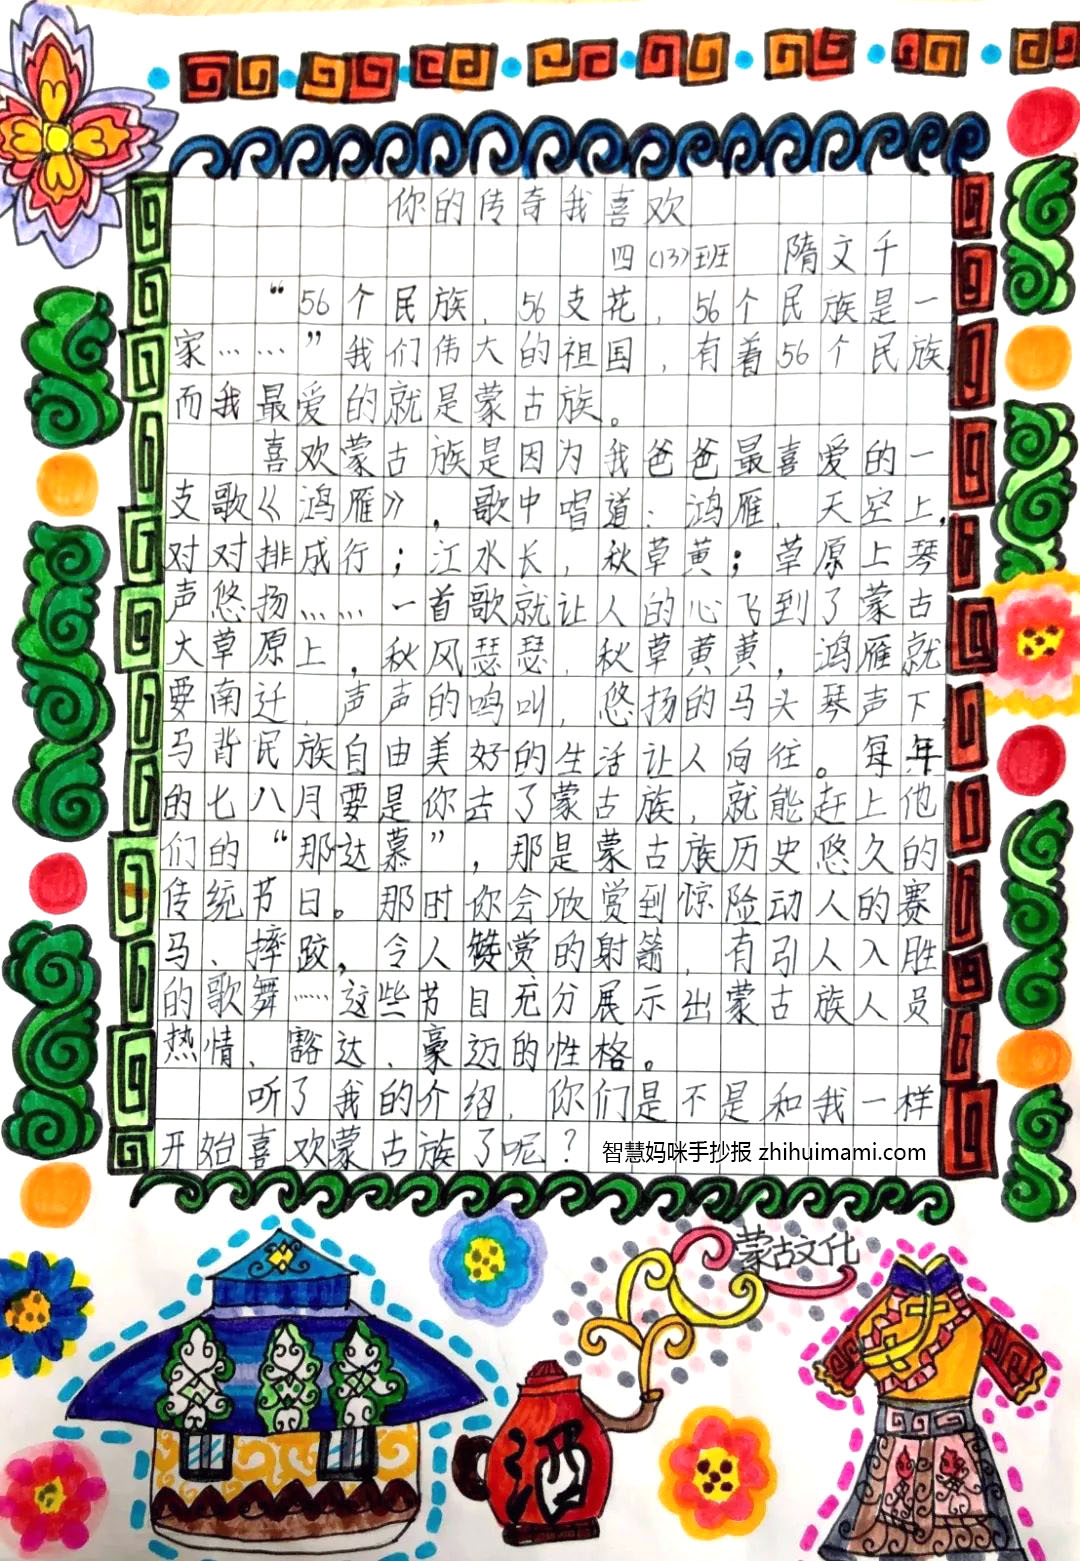 你的传奇我喜欢
四(13)班 隋文千
“56个民族，56支花，56个民族是一
家……”我们伟大的祖国，有着56个民族，
而我最爱的就是蒙古族。
喜欢蒙古族是因为我爸爸最喜爱的一
支歌《鸿雁》，歌中唱道：鸿雁，天空上，
对对排成行；江水长，秋草黄；草原上琴
声悠扬……一首歌就让人的心飞到了蒙古
大草原上，秋风瑟瑟，秋草黄黄，鸿雁就
要南迁，声声的鸣叫，悠扬的马头琴声下，
马背民族自由美好的生活让人向往。每年
的七八月要是你去了蒙古族，就能赶上他
们的“那达慕”，那是蒙古族历史悠久的
传统节日。那时你会欣赏到惊险动人的赛
马、摔跤，令人赞赏的射箭，有引人入胜
的歌舞……这些节目充分展示出蒙古族人员
热情、豁达、豪迈的性格。
听了我的介绍，你们是不是和我一样
开始喜欢蒙古族了呢？
智慧妈咪手抄报 zhihuimami.com
蒙古文化
酒